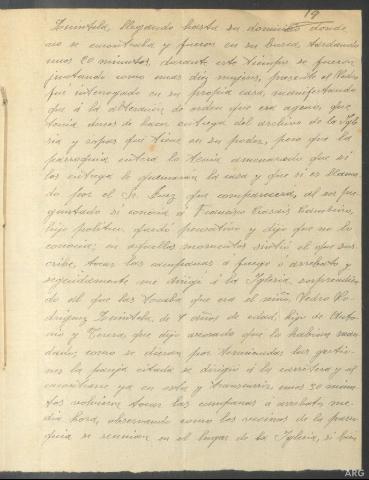 19
Quintela, llegando hasta su domicilio donde
no se encontraba y fueron en su busca tardando
unos 20 minutos, durante este tiempo se fueron
juntando como unas diez mujeres, presente el Pedro
fue interrogado en su propia casa, manifestando
que á la alteración de orden que era ageno, que
tenia deseos de hacer entrega del archivo de la Igle
sia y ropas que tiene en su poder, pero que la
parroquia entera le tenia amenazado que si
las entrega le quemarán la casa y que si es llama
do por el Sr. Juez que comparecerá, al ser pre
guntado si conocia á Francisco Casáis
hijo politico, quedó pensativo y dijo que no lo
conocia; en aquellos momentos sintió el que sus
cribe, tocar las campanas á fuego ó arrebato y
seguidamente me dirigí á la Iglesia, sorprendien
do al que las tocaba que era el niño, Pedro Ro
driguez Quintela de 7 años de edad, hijo de Anto
nio y Teresa, que dijo que le habian man
dado, como se dieran por terminadas las gestio
nes la pareja citada se dirigió á la carretera y al
encontrarse ya en esta y transcurrir unos 30 minu
tos volvieron tocar las campanas á arrebato me
dia hora, observando como los vecinos de la parro
quia se reunian en el lugar de la Iglesia, si bien
ARG